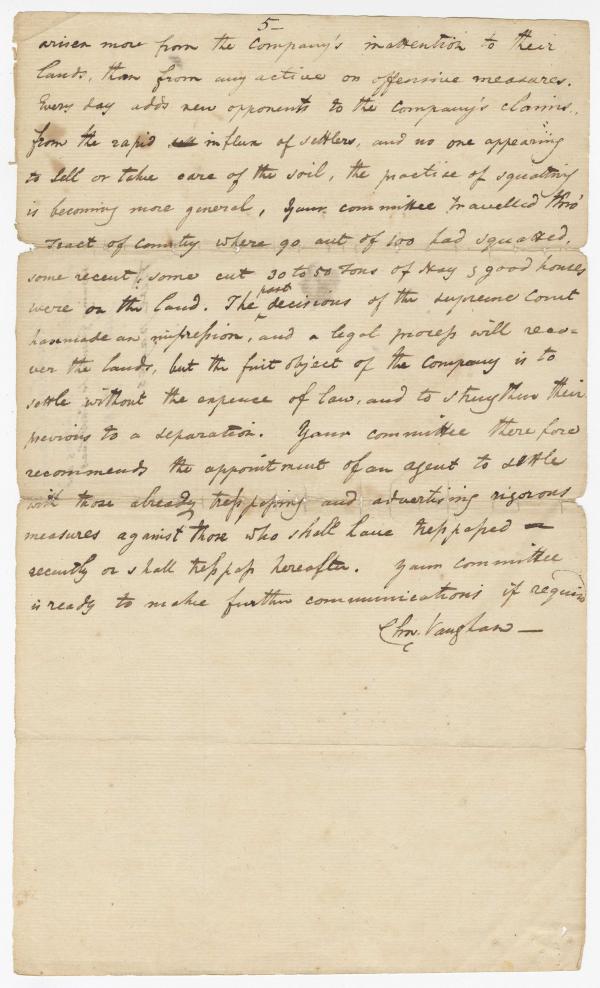 5-
arisen more from the Company's inattention to their
lands, than from any active or offensive measures.
Every day adds new opponents to the Company's claims,
from the rapid influx of settlers, and no one appearing
to sell or take care of the soil, the practice of squatting
is becoming more general, Your committee travelled thro'
Tract of Country where 90 out of 100 had squatted,
some recent, some cut 30 to 50 Tons of Hay & good houses
were on the land. The past decisions of the supreme Court
has made an impression, and a legal process will reco-
ver the lands, but the first object of the Company is to
settle without the expence of law, and to strengthen their
previous to a separation. Your committee therefore
recommends the appointment of an agent to settle
with those already tresspassing and advertising rigorous
measures against those who shall have tresspassed —
recently or shall tresspass hereafter. Your committee
is ready to make further communications if required
Chas. Vaughan —